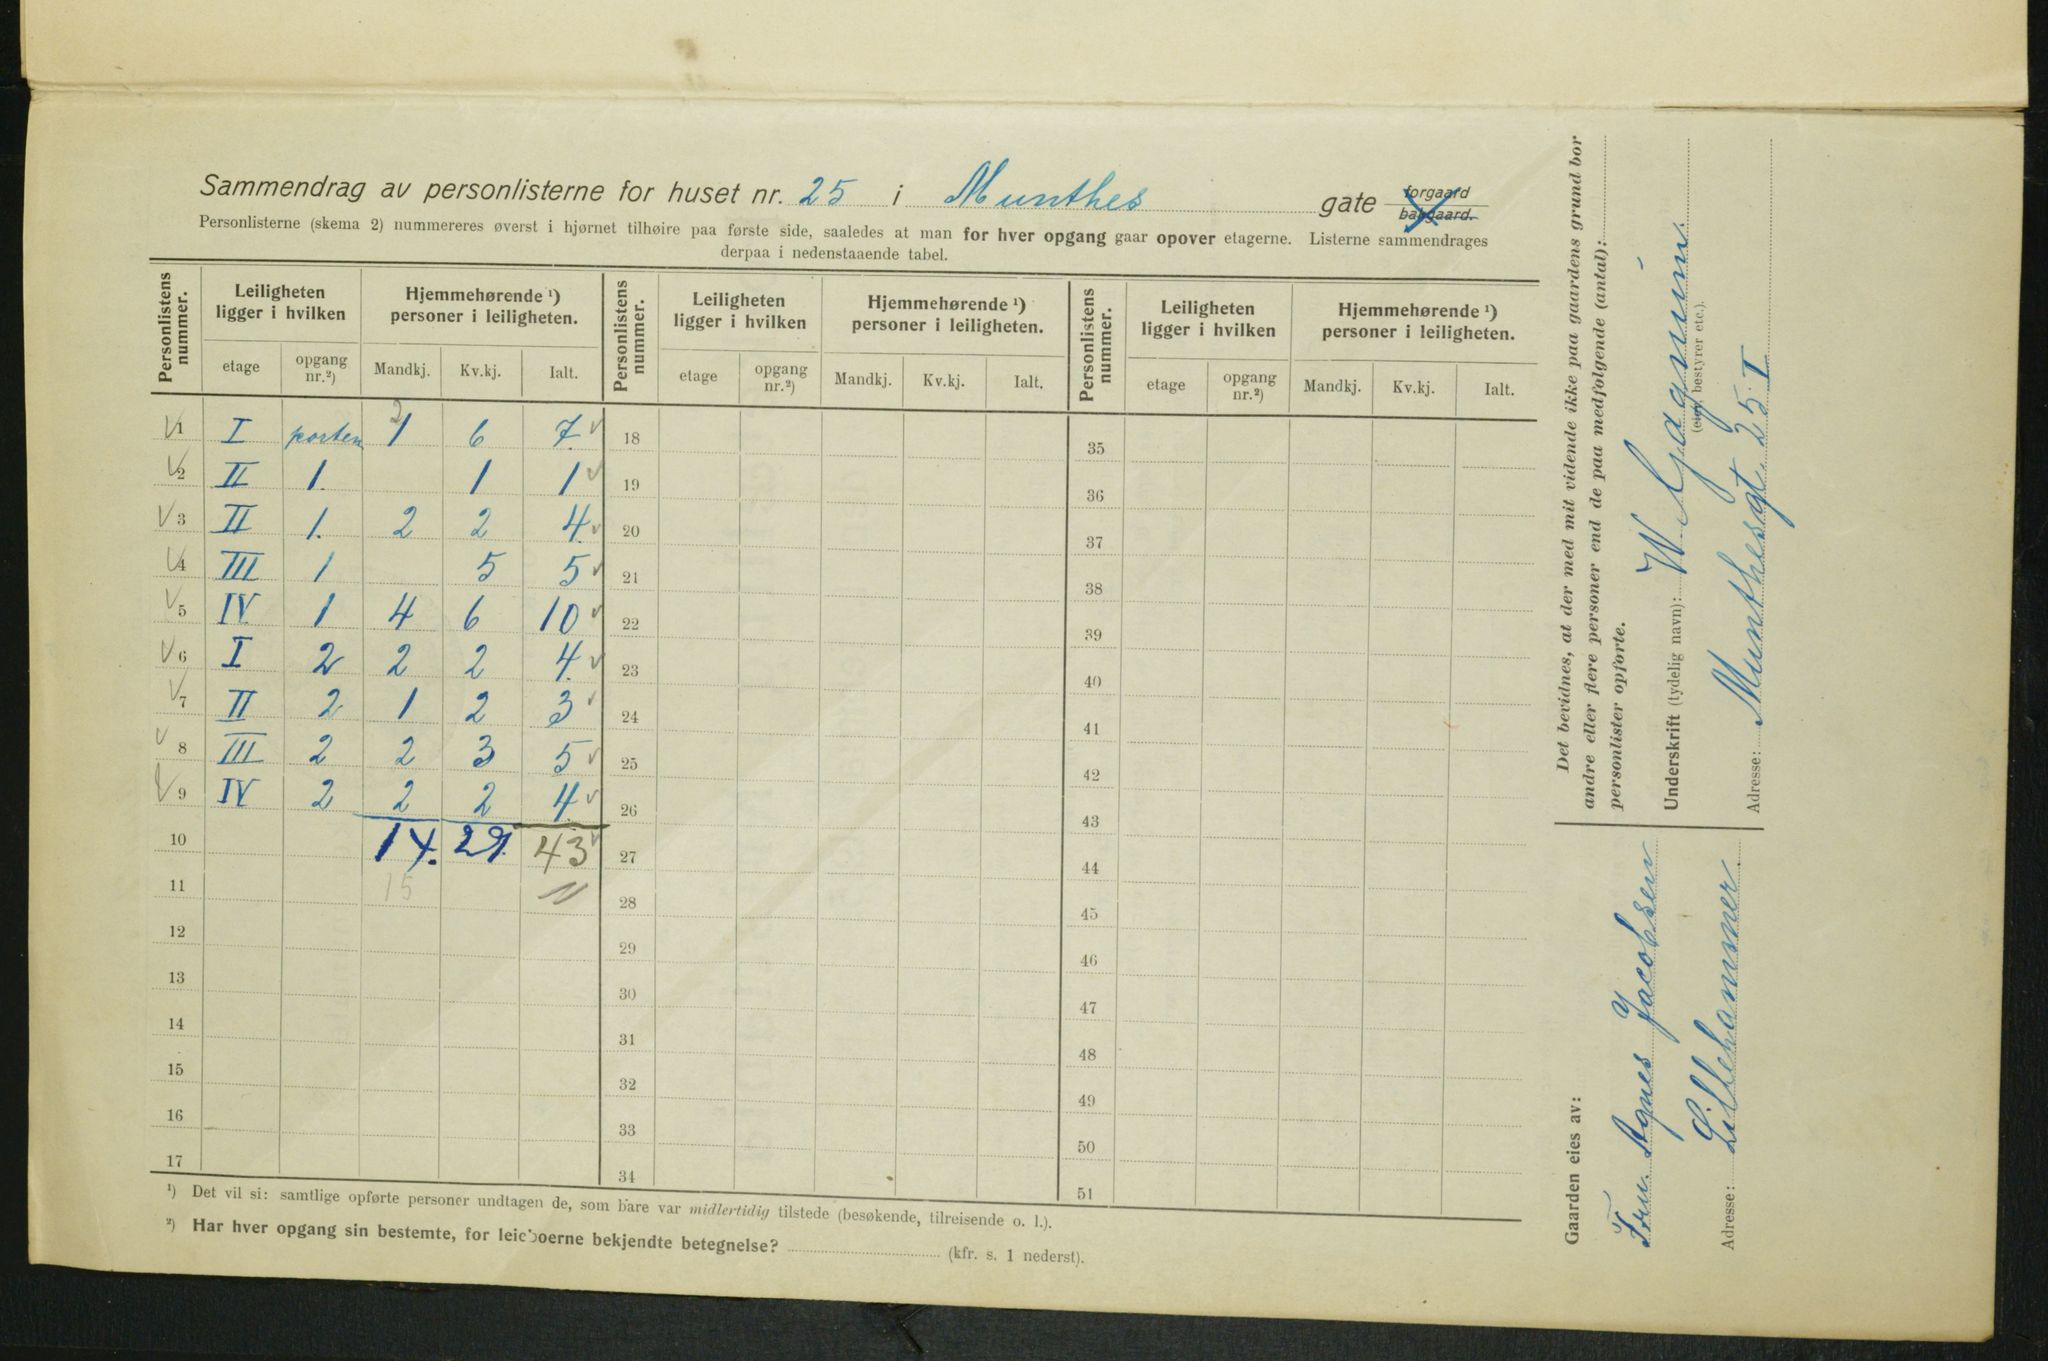 Sammendrag av personlisterne for huset nr. 25 i Munthes gate forgaard bakgaard.
Personlisterne (skema 2) nummereres øverst i hjørnet tilhøire paa første side, saaledes at man for hver opgang gaar opover etagerne. Listerne sammendrages
derpaa i nedenstaaende tabel.
Personlistens nummer. Leiligheten ligger i hvilken Hjemmehørende ¹) personer i leiligheten. Personlistens nummer. Leiligheten ligger i hvilken Hjemmehørende ¹) personer i leiligheten. Personlistens nummer. Leiligheten ligger i hvilken Hjemmehørende ¹) personer i leiligheten.
etage opgang nr.²) Mandkj. Kv.kj. Ialt. etage opgang nr.²) Mandkj. Kv.kj. Ialt. etage opgang nr.²) Mandkj. Kv.kj. Ialt.
2
√ 1 I porten 1 6 7. √ 18 35
√ 2 II 1. 1 1 √ 19 36
√ 3 II 1. 2 2 4. √ 20 37
√ 4 III 1 5 5 √ 21 38
√ 5 IV 1 4 6 10 √ 22 39
√ 6 I 2 2 2 4. √ 23 40
√ 7 II 2 1 2 3 √ 24 41
√ 8 III 2 2 3 5 √ 25 42
√ 9 IV 2 2 2 4. √ 26 43
10 14. 29. 43 √ 27 44
11 15 28 45
12 29 46
13 30 47
14 31 48
15 32 49
16 33 50
17 34 51
¹) Det vil si: samtlige opførte personer undtagen de, som bare var midlertidig tilstede (besøkende, tilreisende o. l.).
²) Har hver opgang sin bestemte, for leieboerne bekjendte betegnelse? (kfr. s. 1 nederst).
Det bevidnes, at der med mit vidende ikke paa gaardens grund bor
andre eller flere personer end de paa medfølgende (antal):
personlister opførte.
Underskrift (tydelig navn):
(eier, bestyrer etc.).
Adresse: Munthesgt. 25 I
Gaarden eies av:
Fru Agnes Jacobsen
Adresse: Lillehammer